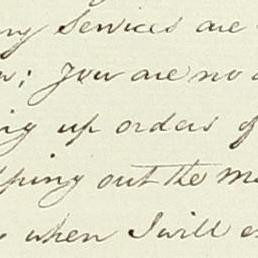 my Services are
; You are no
ing up orders of
pping out the
when I will